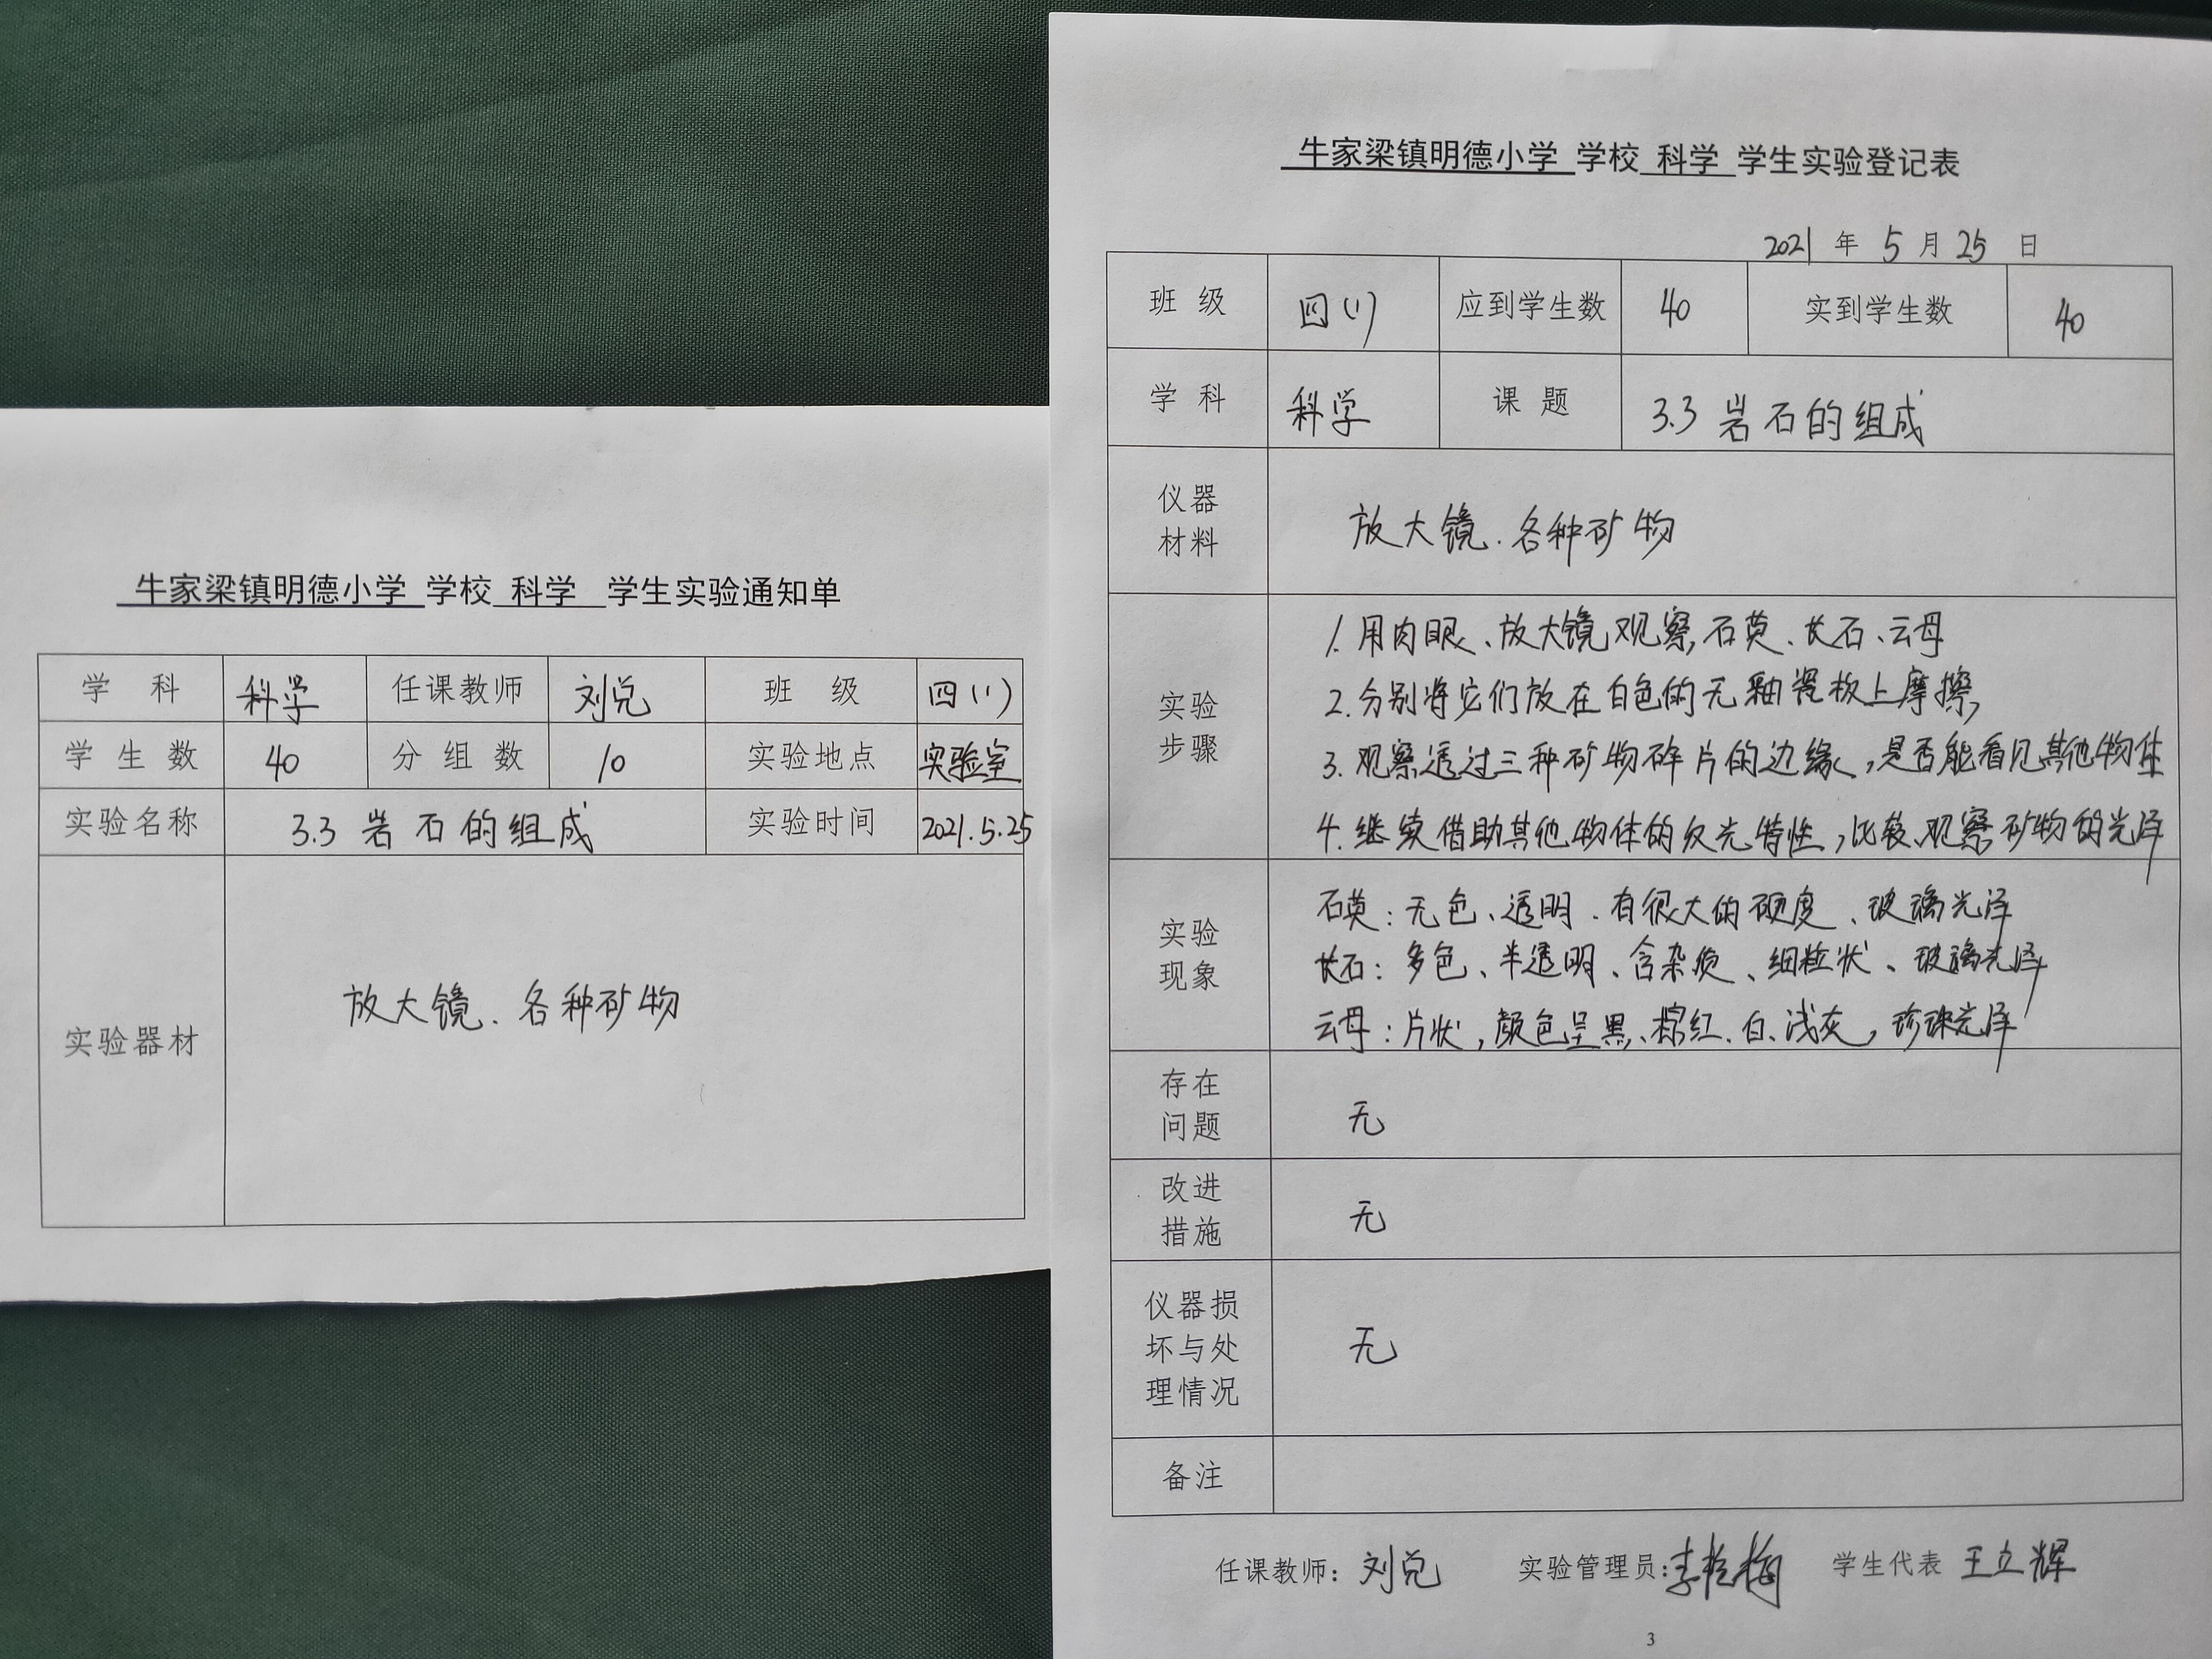 牛家梁镇明德小学 学校 科学 学生实验通知单
学 科 科学 任课教师 刘兑 班 级 四(1)
学 生 数 40 分 组 数 10 实验地点 实验室
实验名称 3.3 岩石的组成 实验时间 2021.5.25
实验器材 放大镜、各种矿物
牛家梁镇明德小学 学校 科学 学生实验登记表
2021 年 5 月 25 日
班 级 四(1) 应到学生数 40 实到学生数 40
学 科 科学 课 题 3.3 岩石的组成
仪器
材料
放大镜、各种矿物
实验
步骤
1. 用肉眼、放大镜观察石英、长石、云母
2. 分别将它们放在白色的无釉瓷板上摩擦,
3. 观察透过三种矿物碎片的边缘,是否能看见其他物体
4. 继续借助其他物体的反光特性,比较、观察矿物的光泽
实验
现象
石英:无色、透明、有很大的硬度、玻璃光泽
长石:多色、半透明、含杂质、细粒状、玻璃光泽
云母:片状,颜色呈黑、棕红、白、浅灰,珍珠光泽
存在
问题
无
改进
措施
无
仪器损
坏与处
理情况
无
备注
任课教师: 刘兑 实验管理员: 李 梅 学生代表 王立辉
3